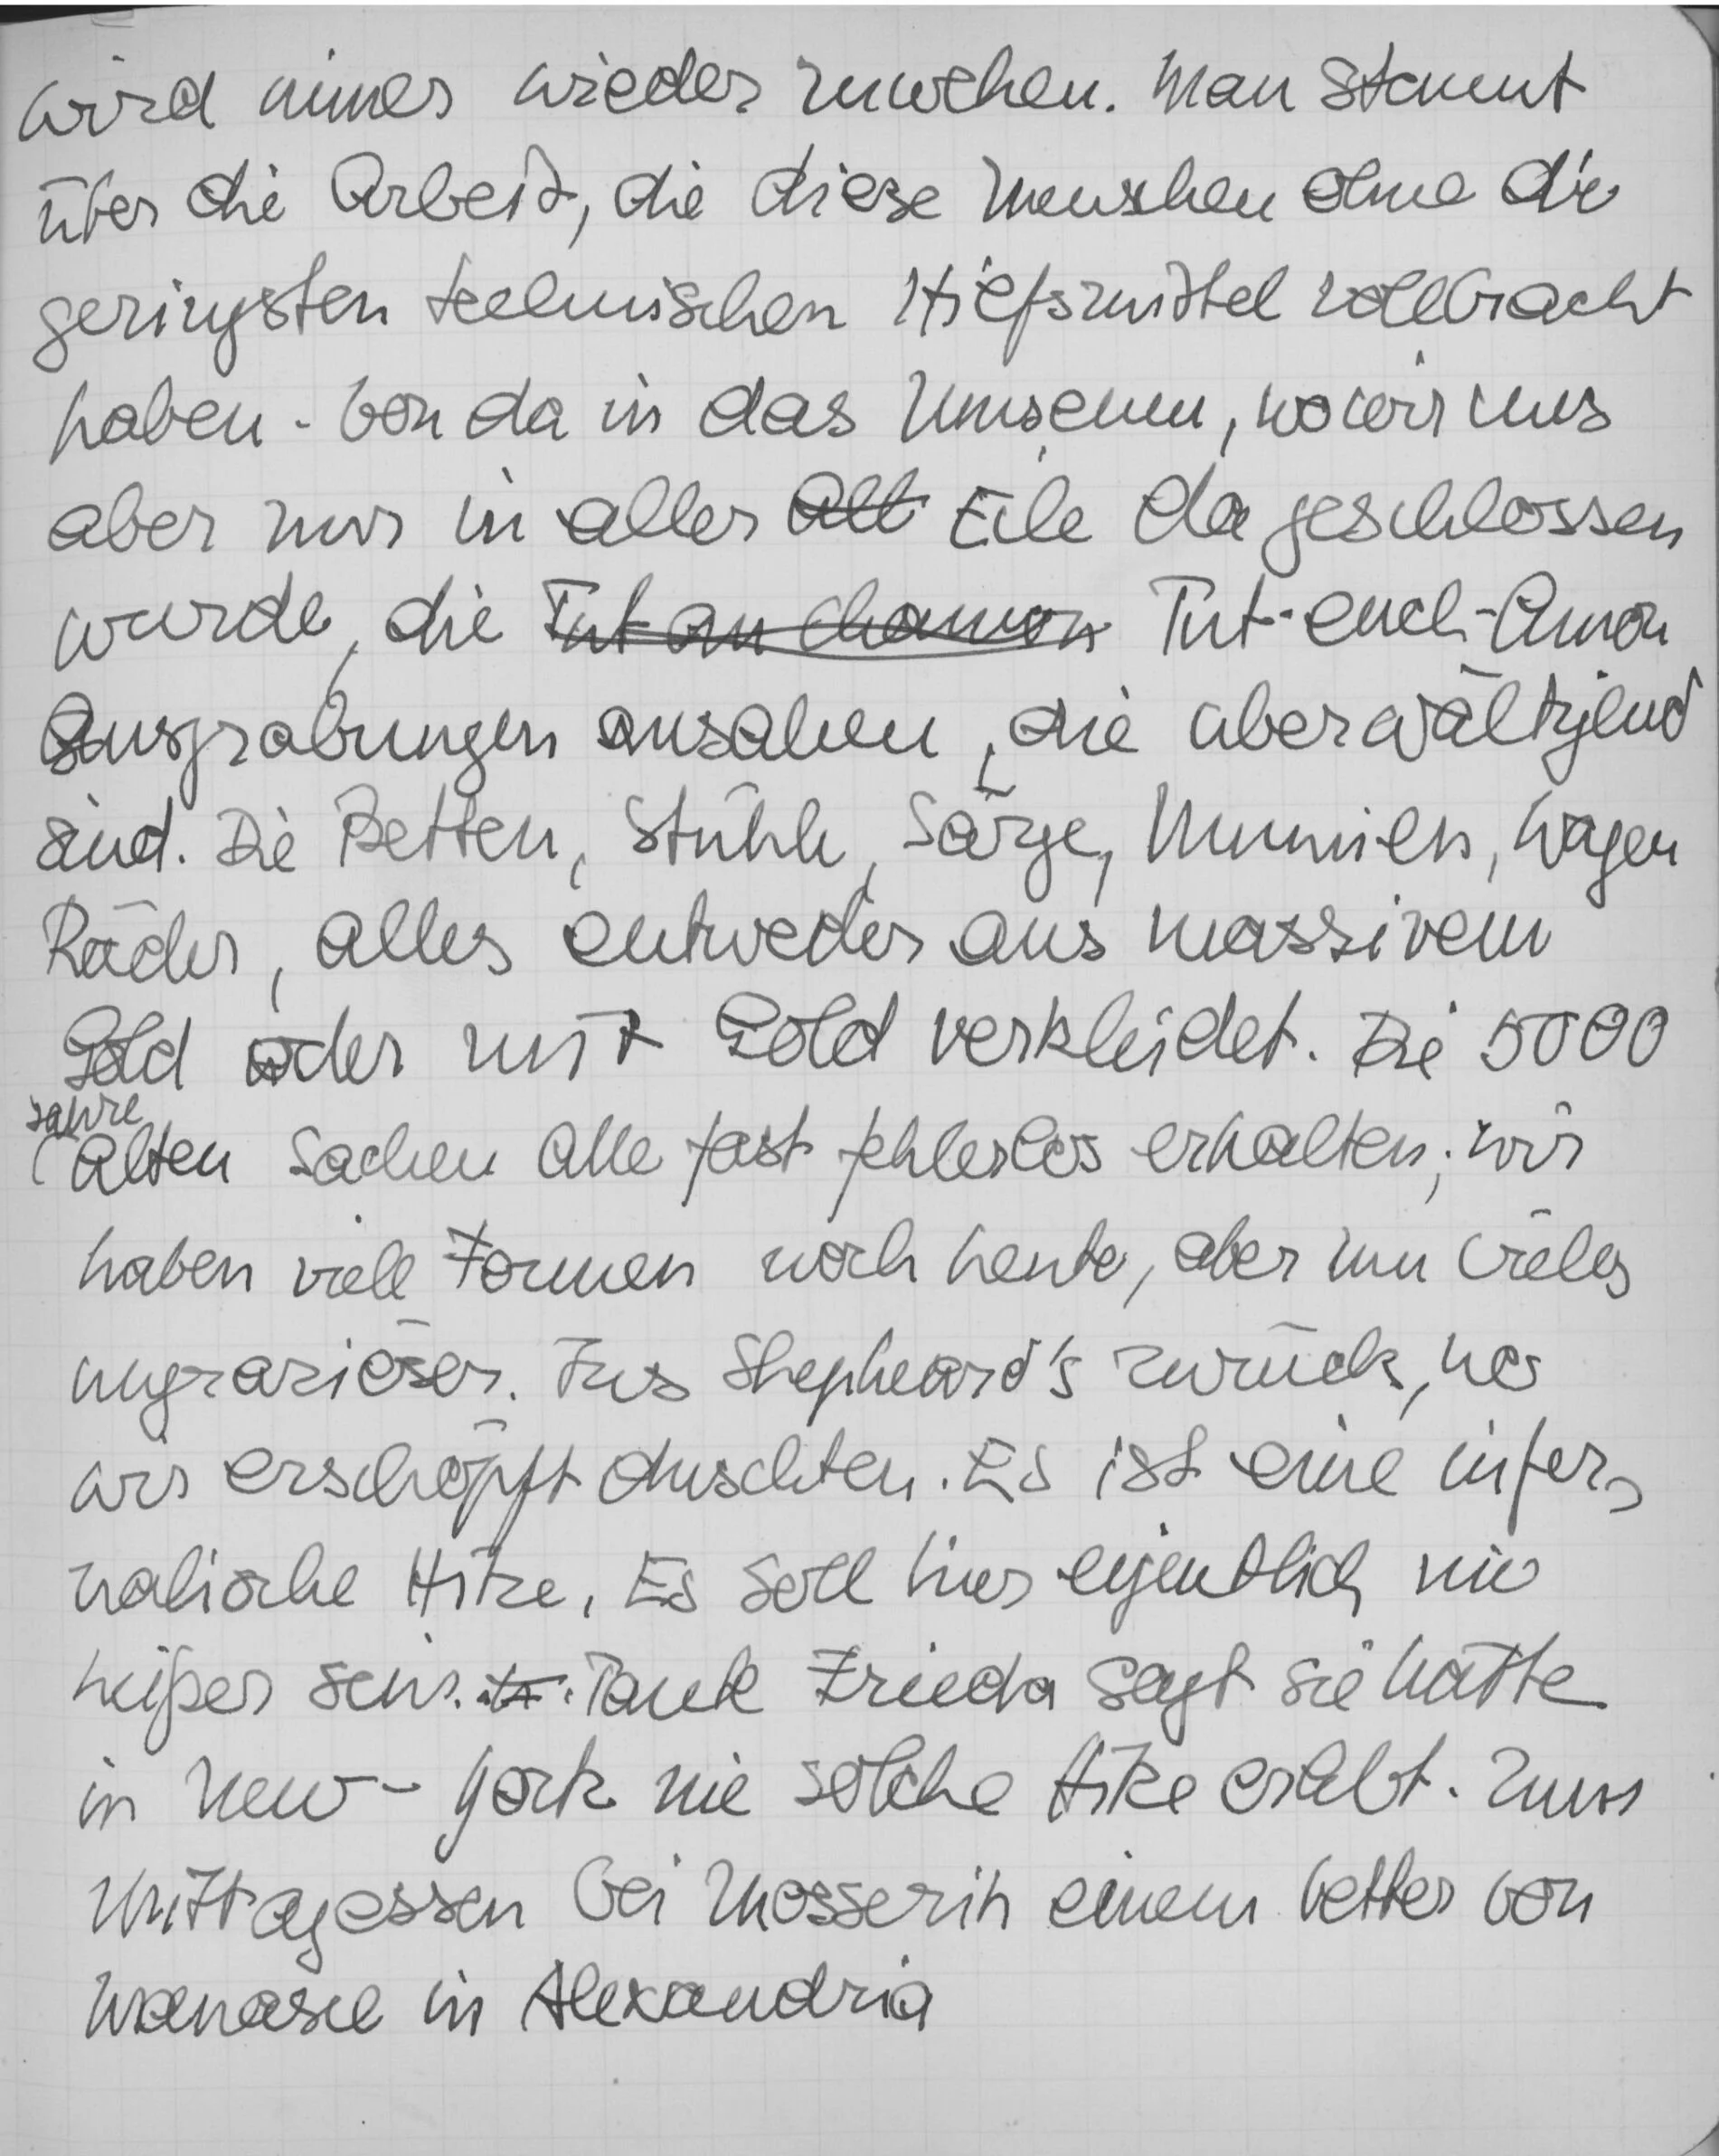 wird immer wieder zuwehen. Man staunt
über die Arbeit, die diese Menschen ohne die
geringsten technischen Hilfsmittel vollbracht
haben. Von da in das Museum, wo wir uns
aber nur in aller All Eile da geschlossen
wurde, die Tut an chamon Tut-ench-Amon
Ausgrabungen ansahen, die überwältigend
sind. Die Betten, Stühle, Särge, Mumien, Wagen
Räder, alles entweder aus massivem
Gold oder mit Gold verkleidet. Die 5000
Jahre
alten Sachen alle fast fehlerlos erhalten; wir
haben viele Formen noch heute, aber um vieles
ungraziöser. Ins Shepheard's zurück, wo
wir erschöpft duschten. Es ist eine infer-
nalische Hitze. Es soll hier eigentlich nie
heißer sein. Tante Frieda sagt sie hätte
in New-York nie solche Hitze erlebt. Zum
Mittagessen bei Mosseri einem Vetter von
in Alexandria